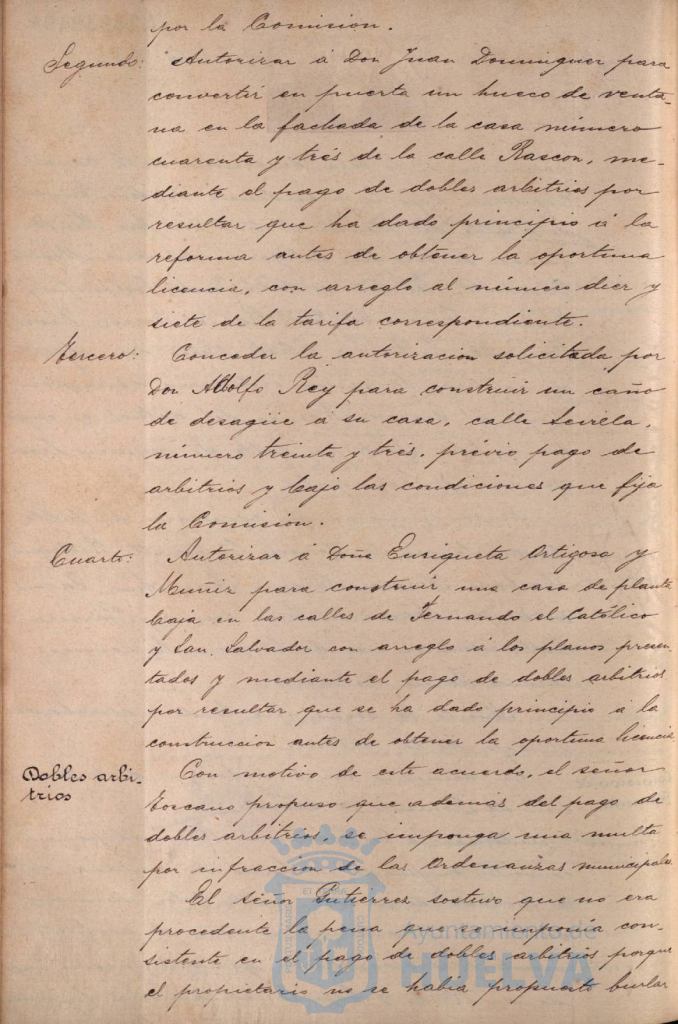 por la Comision.
Segundo: Autorizar á Don Juan Dominguez para
convertir en puerta un hueco de venta-
na en la fachada de la casa número
cuarenta y trés de la calle Rascon, me-
diante el pago de dobles arbitrios por
resultar que ha dado principio á la
reforma antes de obtener la oportuna
licencia, con arreglo al número diez y
siete de la tarifa correspondiente.
Tercero: Conceder la autorizacion solicitada por
Don Adolfo Rey para construir un caño
de desagüe á su casa, calle Sevilla,
número treinta y trés, prévio pago de
arbitrios y bajo las condiciones que fija
la Comision.
Cuarto: Autorizar á Doña Enriqueta Ortigosa y
Muñiz para construir una casa de planta
baja en las calles de Fernando el Católico
y San Salvador con arreglo á los planos presen-
tados y mediante el pago de dobles arbitrios
por resultar que se ha dado principio á la
construccion antes de obtener la oportuna licencia.
Dobles arbi-
trios
Con motivo de este acuerdo, el señor
Toscano propuso que además del pago de
dobles arbitrios, se imponga una multa
por infraccion de las Ordenanzas municipales.
El señor Gutierrez sostuvo que no era
procedente la pena que se imponia con-
sistente en el pago de dobles arbitrios porque
el propietario no se habia propuesto burlar
Ayuntamiento de
HUELVA